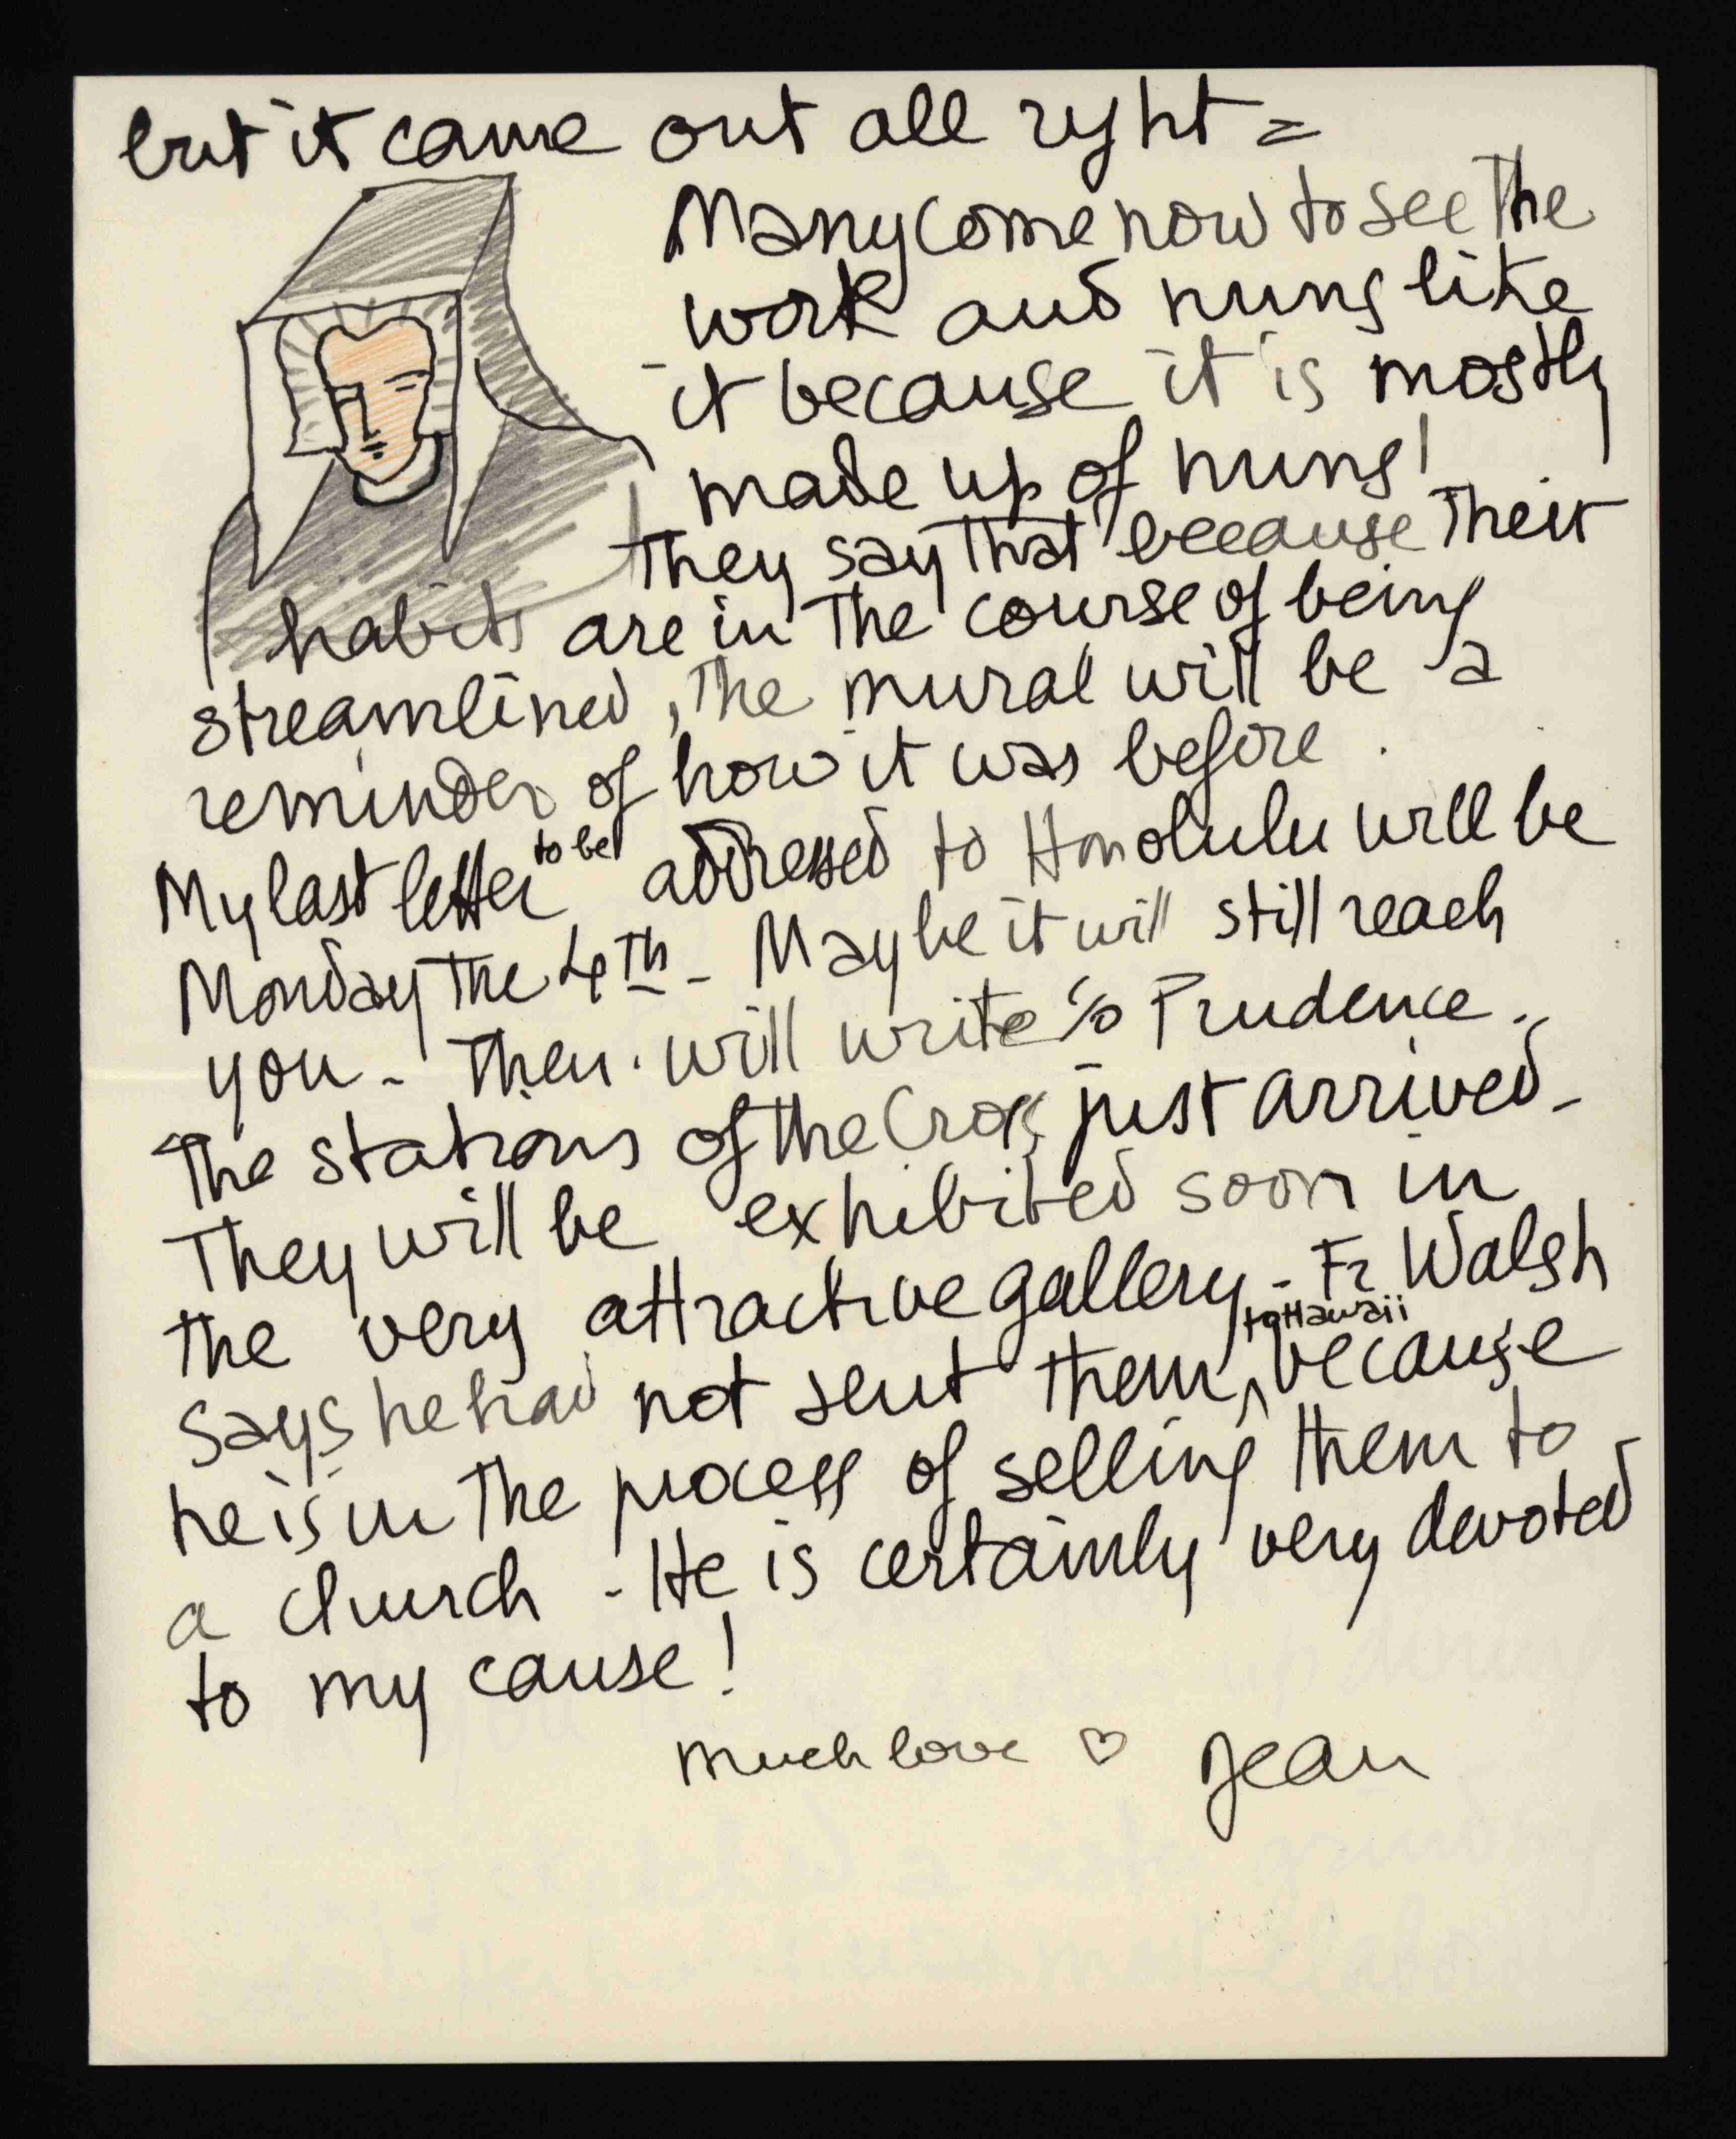 but it came out all right =
Many come now to see the
work and nuns like
it because it is mostly
made up of nuns!
They say that because their
habits are in the course of being
streamlined, the mural will be a
reminder of how it was before.
My last letter to be addressed to Honolulu will be
Monday the 4th - Maybe it will still reach
you - Then. will write c/o Prudence.
The stations of the Cross just arrived -
They will be exhibited soon in
the very attractive gallery - Fr Walsh
says he had not sent them to Hawaii because
he is in the process of selling them to
a church - He is certainly very devoted
to my cause!
much love ♡ Jean